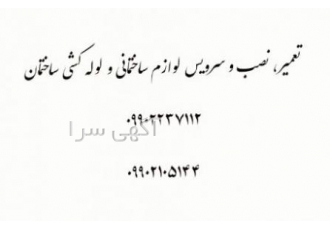 تعمیر، نصب و سرویس لوازم ساختمانی و لوله کشی ساختمان
۰۹۹۰۲۲۳۷۱۱۲
آگهی سرا
۰۹۹۰۲۱۰۵۱۴۴